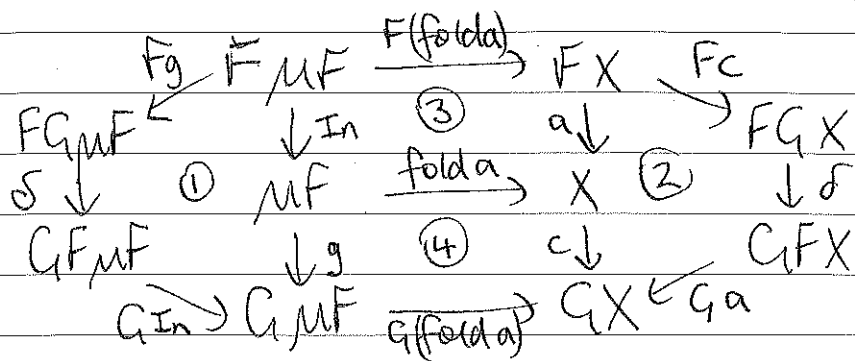 F(fold a)
Fg F μF → FX Fc
FGμF ↓ In ③ a ↓ FGX
δ ↓ ① μF fold a → X ② ↓ δ
GFμF ↓ g ④ c ↓ GFX
GIn GμF G(fold a) → GX Ga